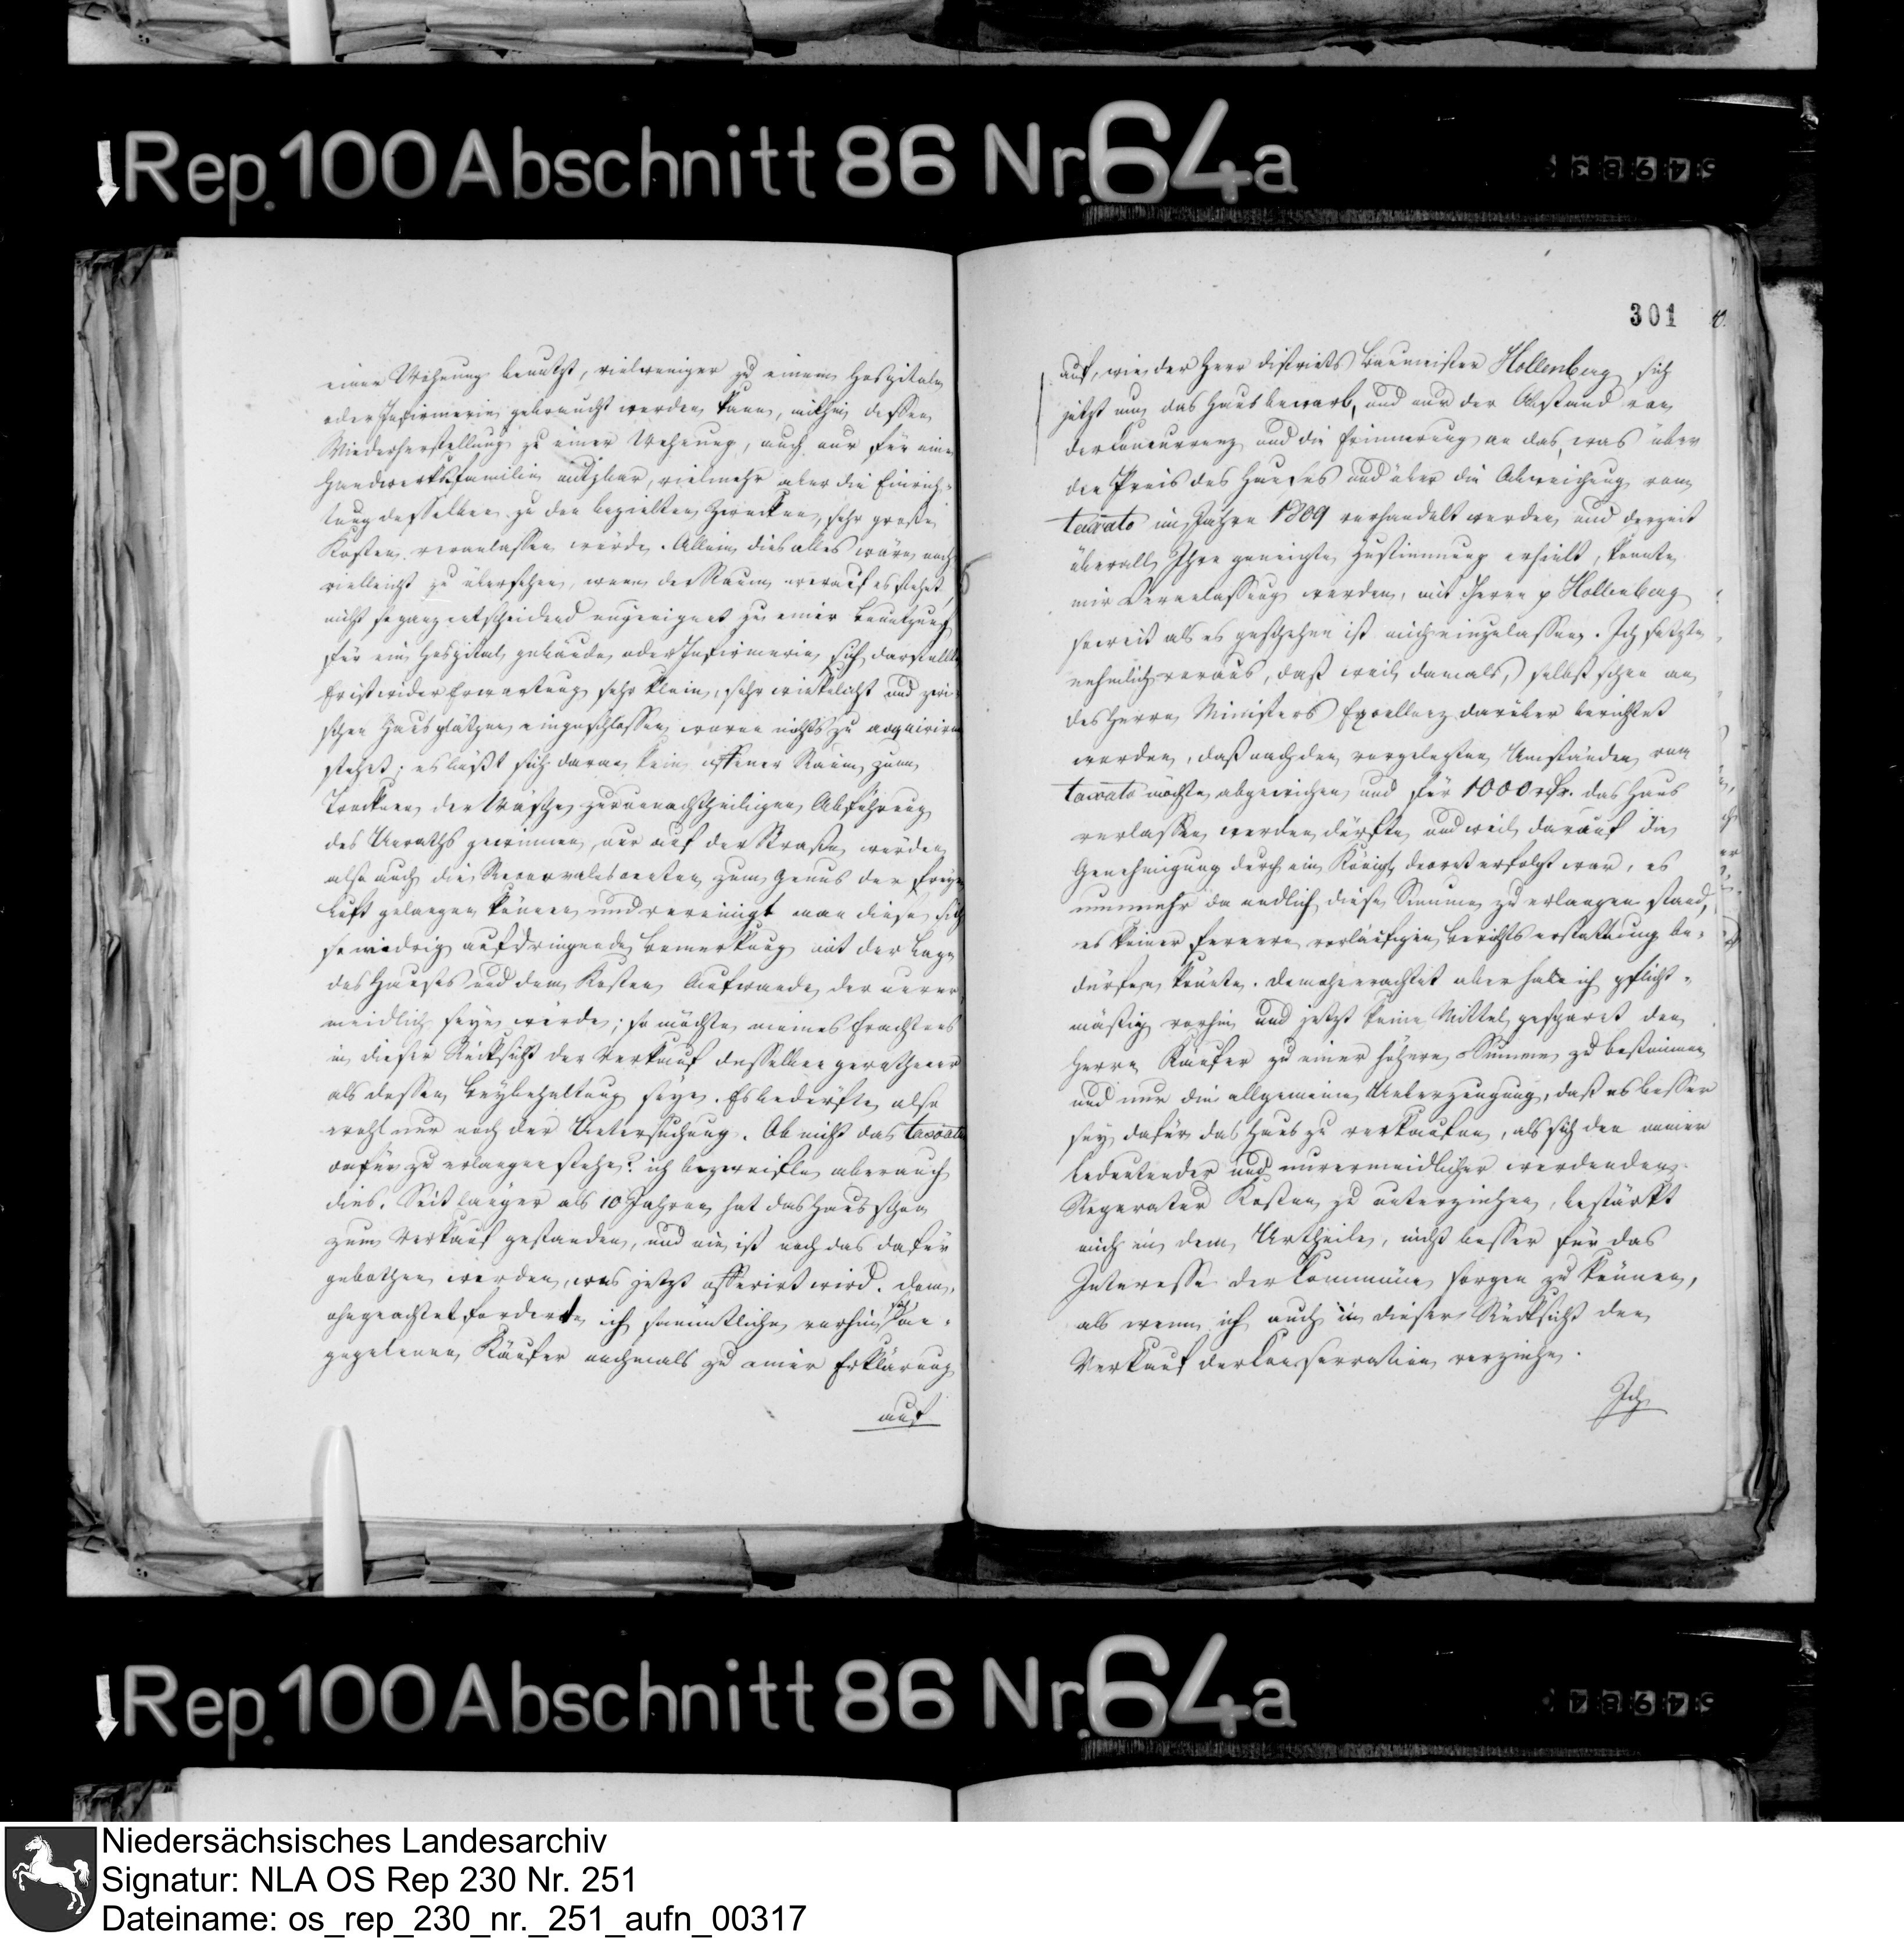 Rep. 100 Abschnitt 86 Nr. 64a
einer Wohnung benutzt, vielweniger zu einem Hospitale
oder Infirmerie gebraucht werden kann, mithin dessen
Wiederherstellung zu einer Wohnung, auch nur für eine
Handwerksfamilie nutzbar, vielmehr aber die Einrich-
tung desselben zu den bezielten Zwecken, sehr große
Kosten veranlassen würde. Allein dies alles wäre noch
vielleicht zu übersehen, wenn der Raum worauf es stehet,
nicht so ganz entscheidend ungeeignet zu einer Benutzung
für ein Hospital gebäude oder Infirmerie sich darstellte
Er ist wider Erwartung sehr klein, sehr winkelicht und zwi-
schen Hausplätzen eingeschlossen wovon nichts zu acquiriren
stehet; es läßt sich daran kein offener Raum zum
Trocknen der Wäsche, zur unnachtheiligen Abführung
des Unraths gewinnen, nur auf der Straße würden
also auch die Reconvalescenten zum Genus der freyen
Luft gelangen können und vereinigt man diese sich
so widrig aufdringende Bemerkung mit der Lage
des Hauses und dem Kosten Aufwande der unver-
meidlich seyn würde; so möchte meines Erachtens
in dieser Rücksicht der Verkauf desselben gerathener
als dessen Beybehaltung seyn. Es bedürfte also
wohl nur noch der Untersuchung. Ob nicht das taxatum
dafür zu erlangen stehe? ich bezweifle aber auch
dies. Seit länger als 10 Jahren hat das Haus schon
zum Verkauf gestanden, und nie ist noch das dafür
gebothen worden, was jetzt offerirt wird. Dem-
ohngeachtet forderte ich sämmtliche vorhin sich an-
gegebenen Käufer nochmals zu einer Erklärung
auf
301
auf, wie der Herr Districts Baumeister Hollenberg sich
jetzt um das Haus bewarb, und nur der Abstand von
der Concurrenz und die Erinnerung an das, was über
den Preis des Hauses und über die Abweichung vom
taxato im Jahre 1809 verhandelt worden und derzeit
überall Ihre geneigte Zustimmung erhielt, konnte
mir Veranlassung werden, mit Herrn p Hollenberg
soweit als es geschehen ist mich einzulassen. Ich setzte
nehmlich voraus, daß weil damals, selbst schon an
des Herrn Ministers Excellenz darüber berichtet
worden, daß nach den vorgelegten Umständen vom
taxato möchte abgewichen und für 1000 rthr. das Haus
verlassen werden dürfte und weil darauf die
Genehmigung durch ein Königl. decret erfolgt war, es
nunmehr da endlich diese Summe zu erlangen stand,
es keiner fernern vorläufigen Berichtserstattung be-
dürfen könnte. Demohnerachtet aber habe ich pflicht-
mäßig vorhin und jetzt keine Mittel gespart den
Herrn Käufer zu einer höhern Summe zu bestimmen
und nur die allgemeine Ueberzeugung, daß es besser
sey dafür das Haus zu verkaufen, als sich den immer
bedeutender und unvermeidlicher werdenden
Reperatur Kosten zu unterziehen, bestärkt
mich in dem Urtheile, nicht besser für das
Interesse der Commüne sorgen zu können,
als wenn ich auch in dieser Rücksicht den
Verkauf der Conservation vorziehe.
Ich
Rep. 100 Abschnitt 86 Nr. 64a
Niedersächsisches Landesarchiv
Signatur: NLA OS Rep 230 Nr. 251
Dateiname: os_rep_230_nr._251_aufn_00317